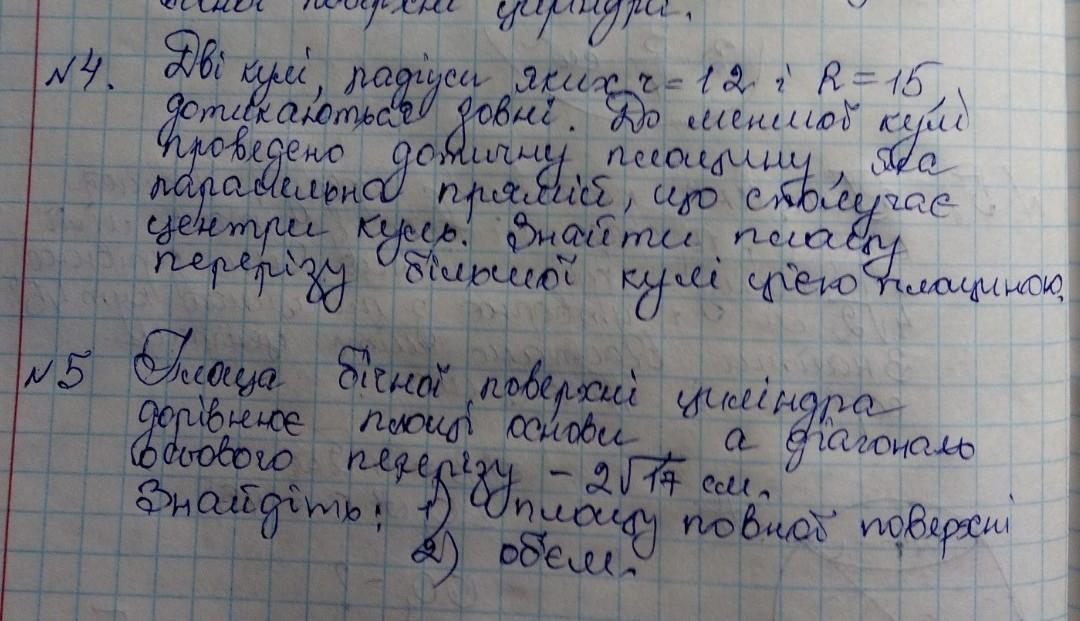 бічної поверхні циліндра.
№4. Дві кулі, радіуси яких r = 12 і R = 15,
дотикаються зовні. До меншої кулі
проведено дотичну площину, яка
паралельна прямій, що сполучає
центри куль. Знайти площу
перерізу більшої кулі цією площиною.
№5 Площа бічної поверхні циліндра
дорівнює площі основи, а діагональ
осьового перерізу – 2√17 см.
Знайдіть: 1) площу повної поверхні
2) об'єм.